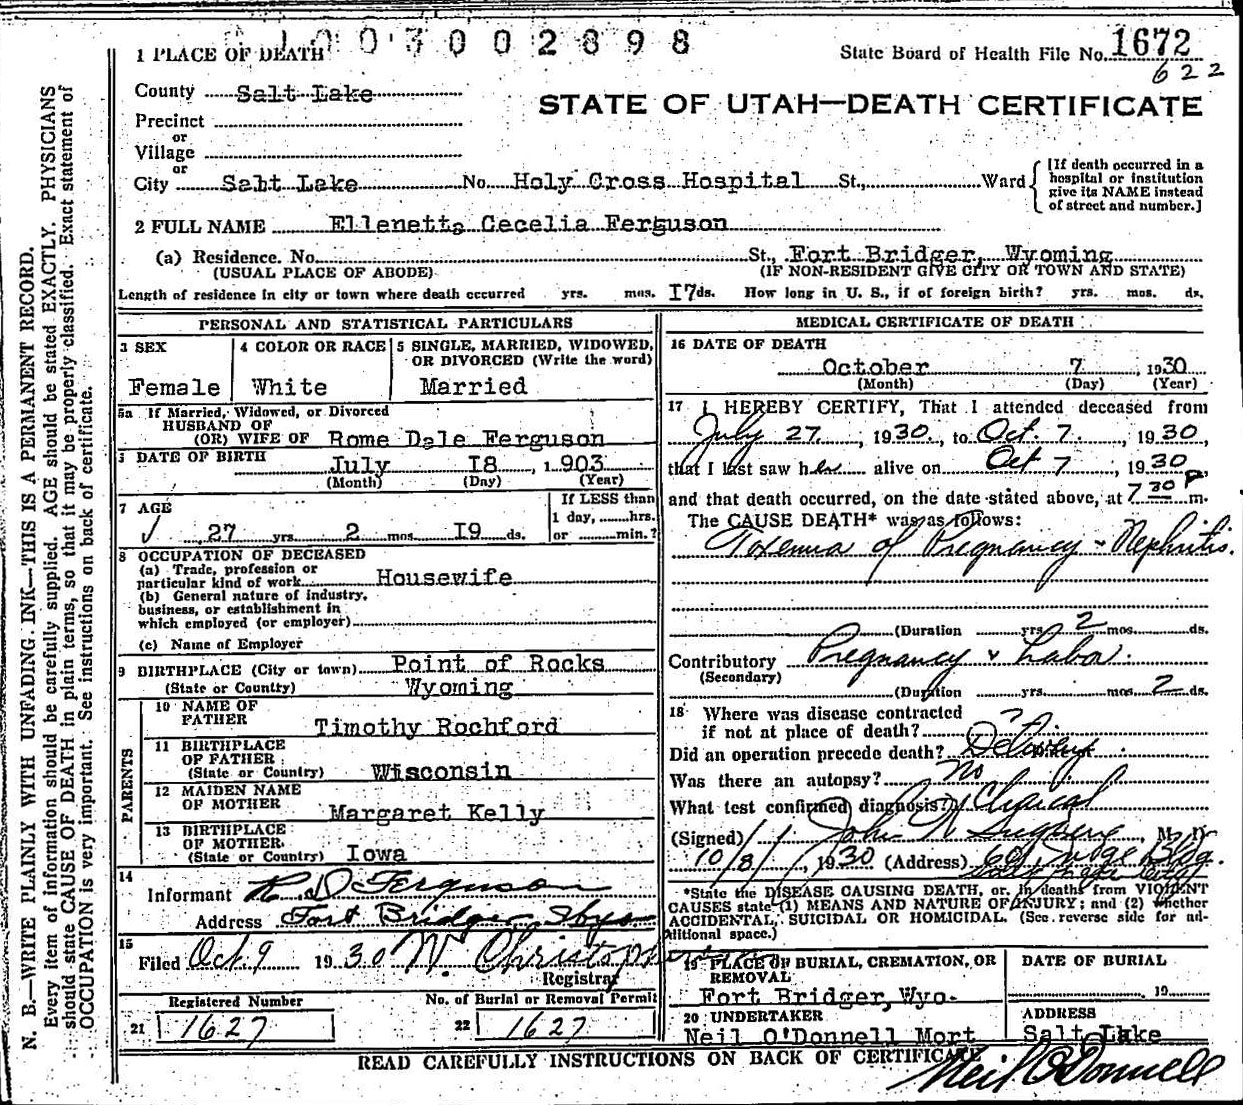 1003002898
1 PLACE OF DEATH
State Board of Health File No. 1672
622
County Salt Lake
STATE OF UTAH—DEATH CERTIFICATE
Precinct
or
Village
or
City Salt Lake No. Holy Cross Hospital St., Ward
[If death occurred in a
hospital or institution
give its NAME instead
of street and number.]
2 FULL NAME Ellenetta Cecelia Ferguson
(a) Residence. No. St., Fort Bridger, Wyoming
(USUAL PLACE OF ABODE) (IF NON-RESIDENT GIVE CITY OR TOWN AND STATE)
Length of residence in city or town where death occurred yrs. mos. 17 ds. How long in U. S., if of foreign birth? yrs. mos. ds.
PERSONAL AND STATISTICAL PARTICULARS
3 SEX
Female
4 COLOR OR RACE
White
5 SINGLE, MARRIED, WIDOWED,
OR DIVORCED (Write the word)
Married
5a If Married, Widowed, or Divorced
HUSBAND OF
(OR) WIFE OF Rome Dale Ferguson
DATE OF BIRTH
July 18, 1903
(Month) (Day) (Year)
7 AGE
27 yrs 2 mos 19 ds.
If LESS than
1 day, hrs.
or min.?
8 OCCUPATION OF DECEASED
(a) Trade, profession or
particular kind of work Housewife
(b) General nature of industry,
business, or establishment in
which employed (or employer)
(c) Name of Employer
9 BIRTHPLACE (City or town) Point of Rocks
(State or Country) Wyoming
PARENTS
10 NAME OF
FATHER Timothy Rochford
11 BIRTHPLACE
OF FATHER
(State or Country) Wisconsin
12 MAIDEN NAME
OF MOTHER Margaret Kelly
13 BIRTHPLACE
OF MOTHER
(State or Country) Iowa
14
Informant R D Ferguson
Address Fort Bridger Wyo
15
Filed Oct 9 1930
Registrar
Registered Number
21 1627
No. of Burial or Removal Permit
22 1627
MEDICAL CERTIFICATE OF DEATH
16 DATE OF DEATH
October 7 1930
(Month) (Day) (Year)
17 I HEREBY CERTIFY, That I attended deceased from
July 27, 1930, to Oct. 7, 1930,
that I last saw her alive on Oct 7, 1930,
and that death occurred, on the date stated above, at 7 30 P m.
The CAUSE DEATH* was as follows:
Toxemia of Pregnancy - Nephritis.
(Duration yrs 2 mos. ds.
Contributory Pregnancy & Labor.
(Secondary)
(Duration yrs. mos. 2 ds.
18 Where was disease contracted
if not at place of death? ?
Did an operation precede death? Delivery
Was there an autopsy? no
What test confirmed diagnosis? Clinical
(Signed) John M. D.
10/8/, 1930 (Address) Judge Bldg.
*State the DISEASE CAUSING DEATH, or, in deaths from VIOLENT
CAUSES state (1) MEANS AND NATURE OF INJURY; and (2) whether
ACCIDENTAL, SUICIDAL OR HOMICIDAL. (See reverse side for ad-
ditional space.)
19 PLACE OF BURIAL, CREMATION, OR
REMOVAL
Fort Bridger, Wyo.
DATE OF BURIAL
19
20 UNDERTAKER
Neil O'Donnell Mort
ADDRESS
Salt Lake
READ CAREFULLY INSTRUCTIONS ON BACK OF CERTIFICATE
Neil O'Donnell
N. B.—WRITE PLAINLY WITH UNFADING INK—THIS IS A PERMANENT RECORD.
Every item of information should be carefully supplied. AGE should be stated EXACTLY. PHYSICIANS
should state CAUSE OF DEATH in plain terms, so that it may be properly classified. Exact statement of
OCCUPATION is very important. See instructions on back of certificate.